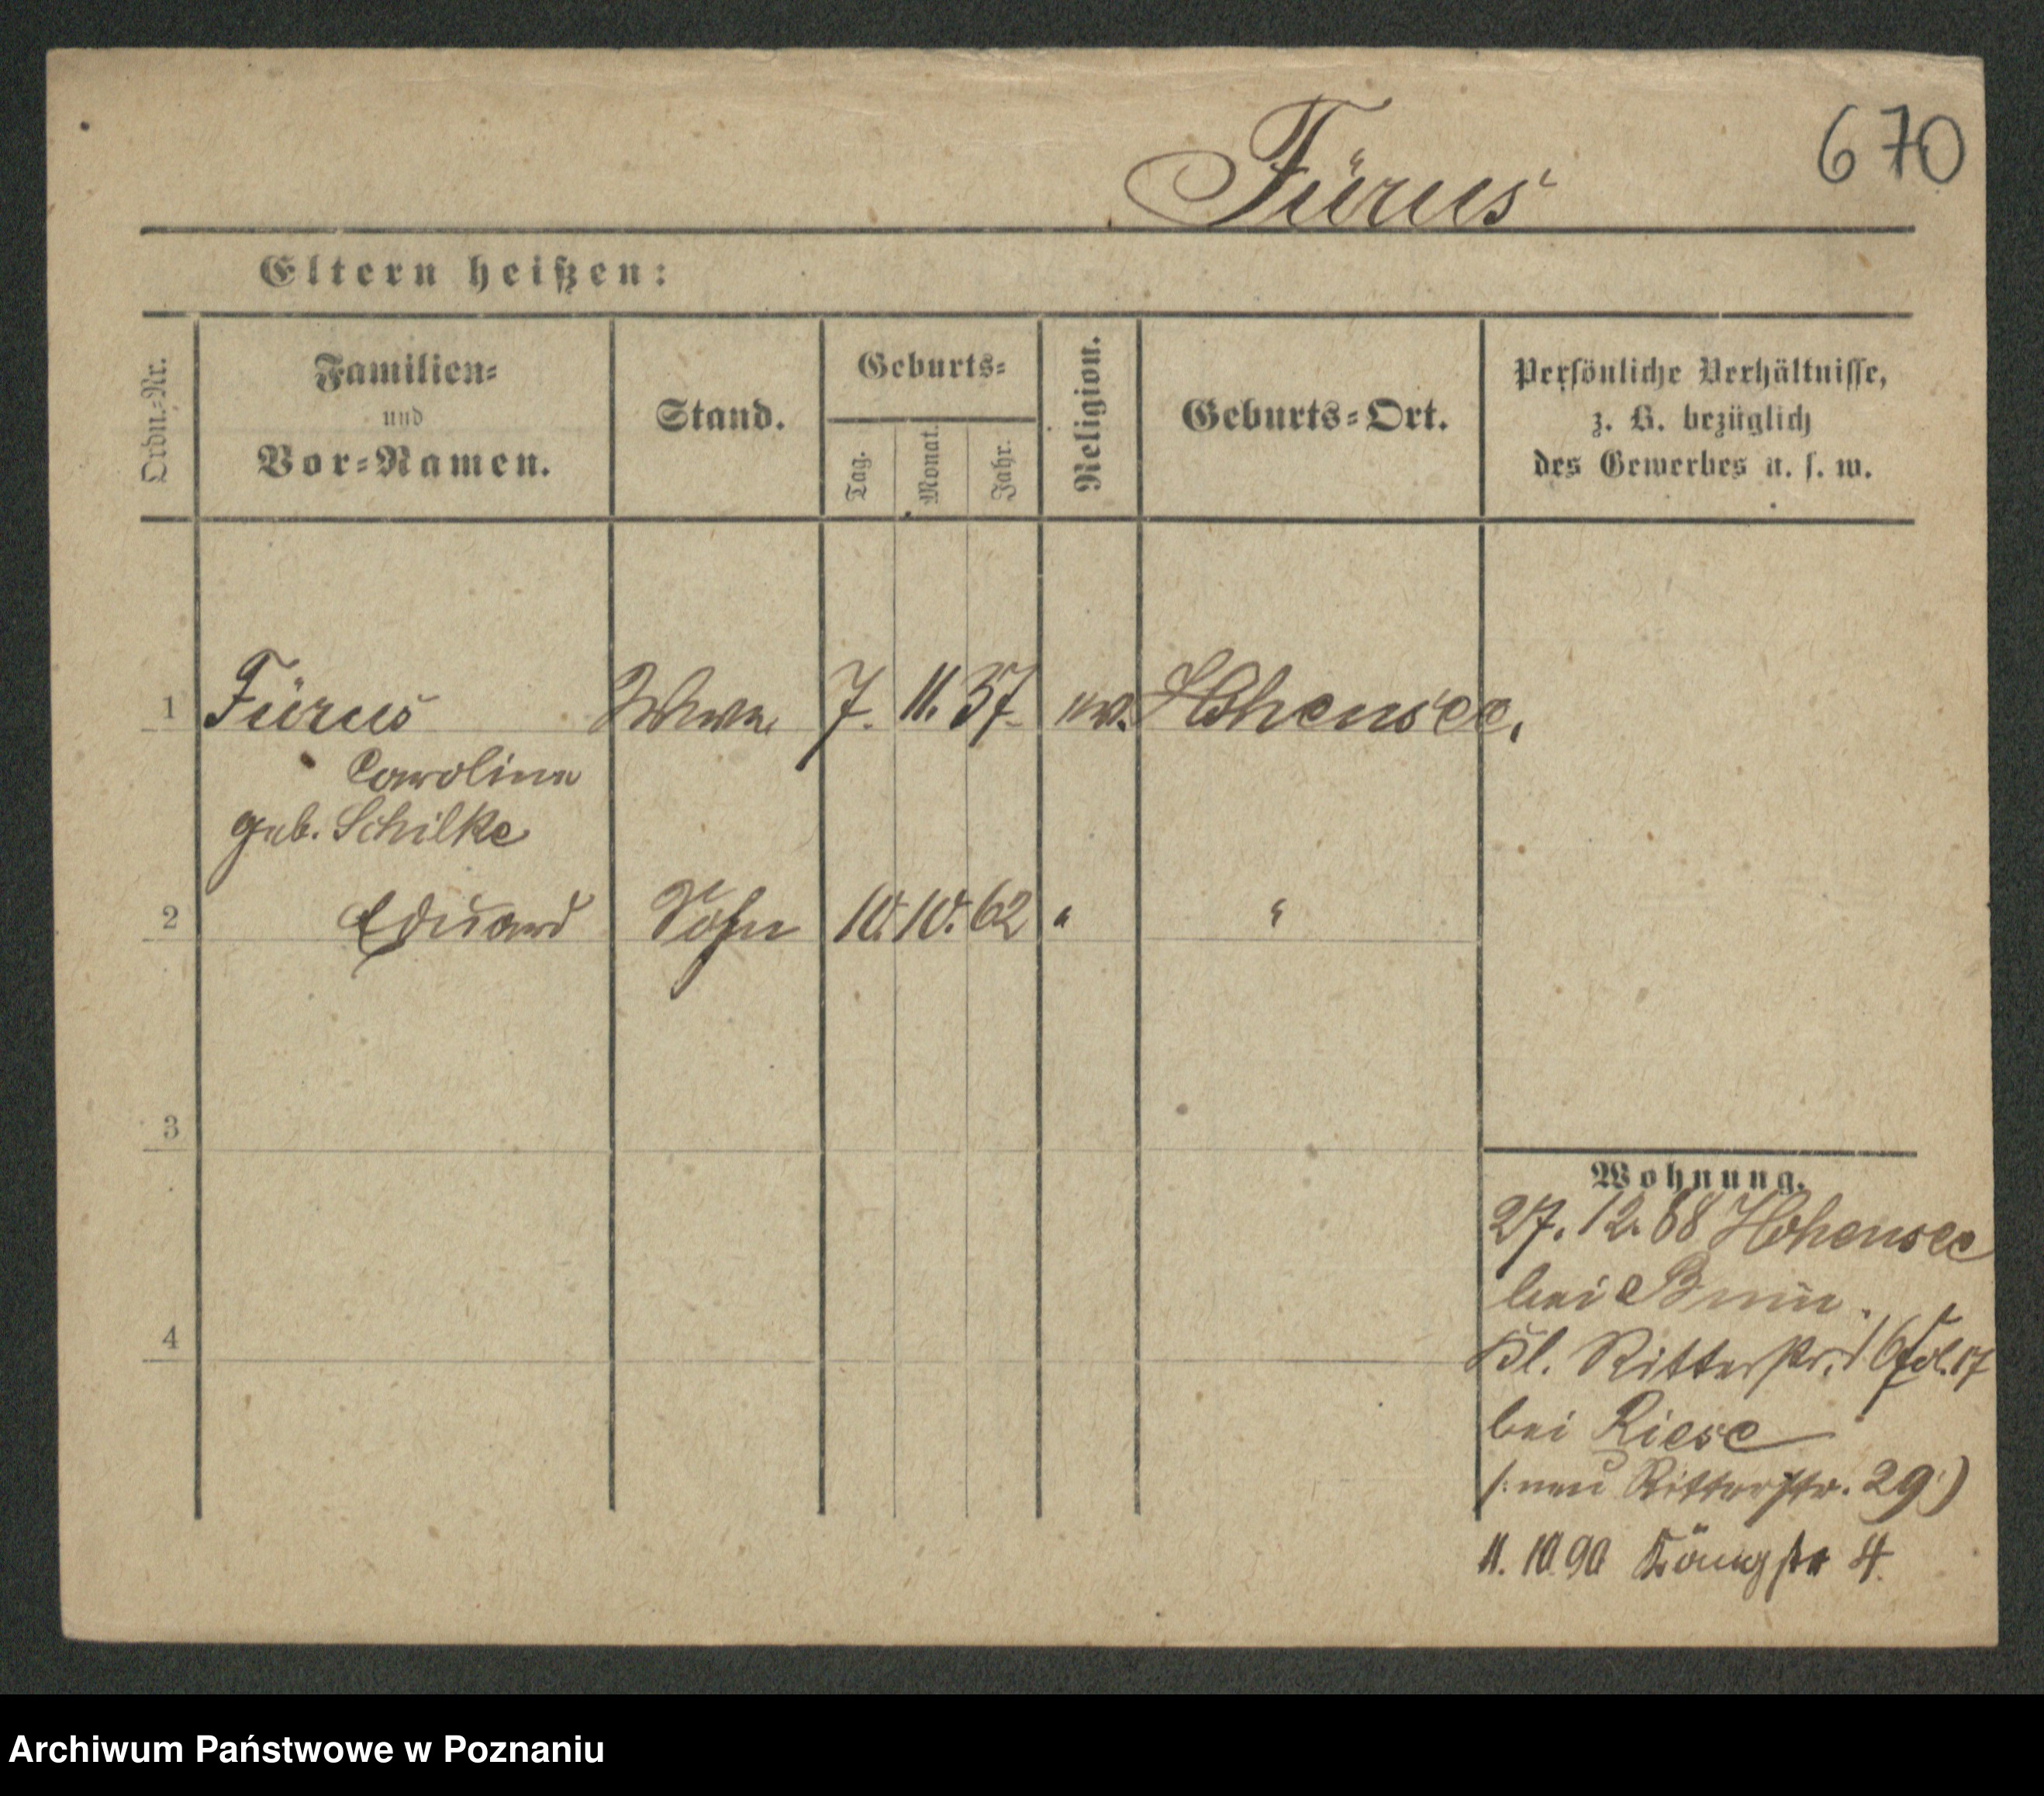 670
Fürus
Eltern heißen:
Ordn.-Nr.
Familien-
und
Vor-Namen.
Stand.
Geburts-
Tag.
Monat.
Jahr.
Religion.
Geburts-Ort.
Persönliche Verhältnisse,
z. B. bezüglich
des Gewerbes u. s. w.
1 Fürus Wwe. 7. 11. 37. ev. Hohensee.
Caroline
geb. Schilke
2 Eduard Sohn 10. 10. 62 " "
3
4
Wohnung.
27. 12. 88 Hohensee
bei
Kl. Ritterstr. 16 fol. 17
bei Riese
(: neu Ritterstr. 29 :)
11. 10 90 Köngstr 4.
Archiwum Państwowe w Poznaniu